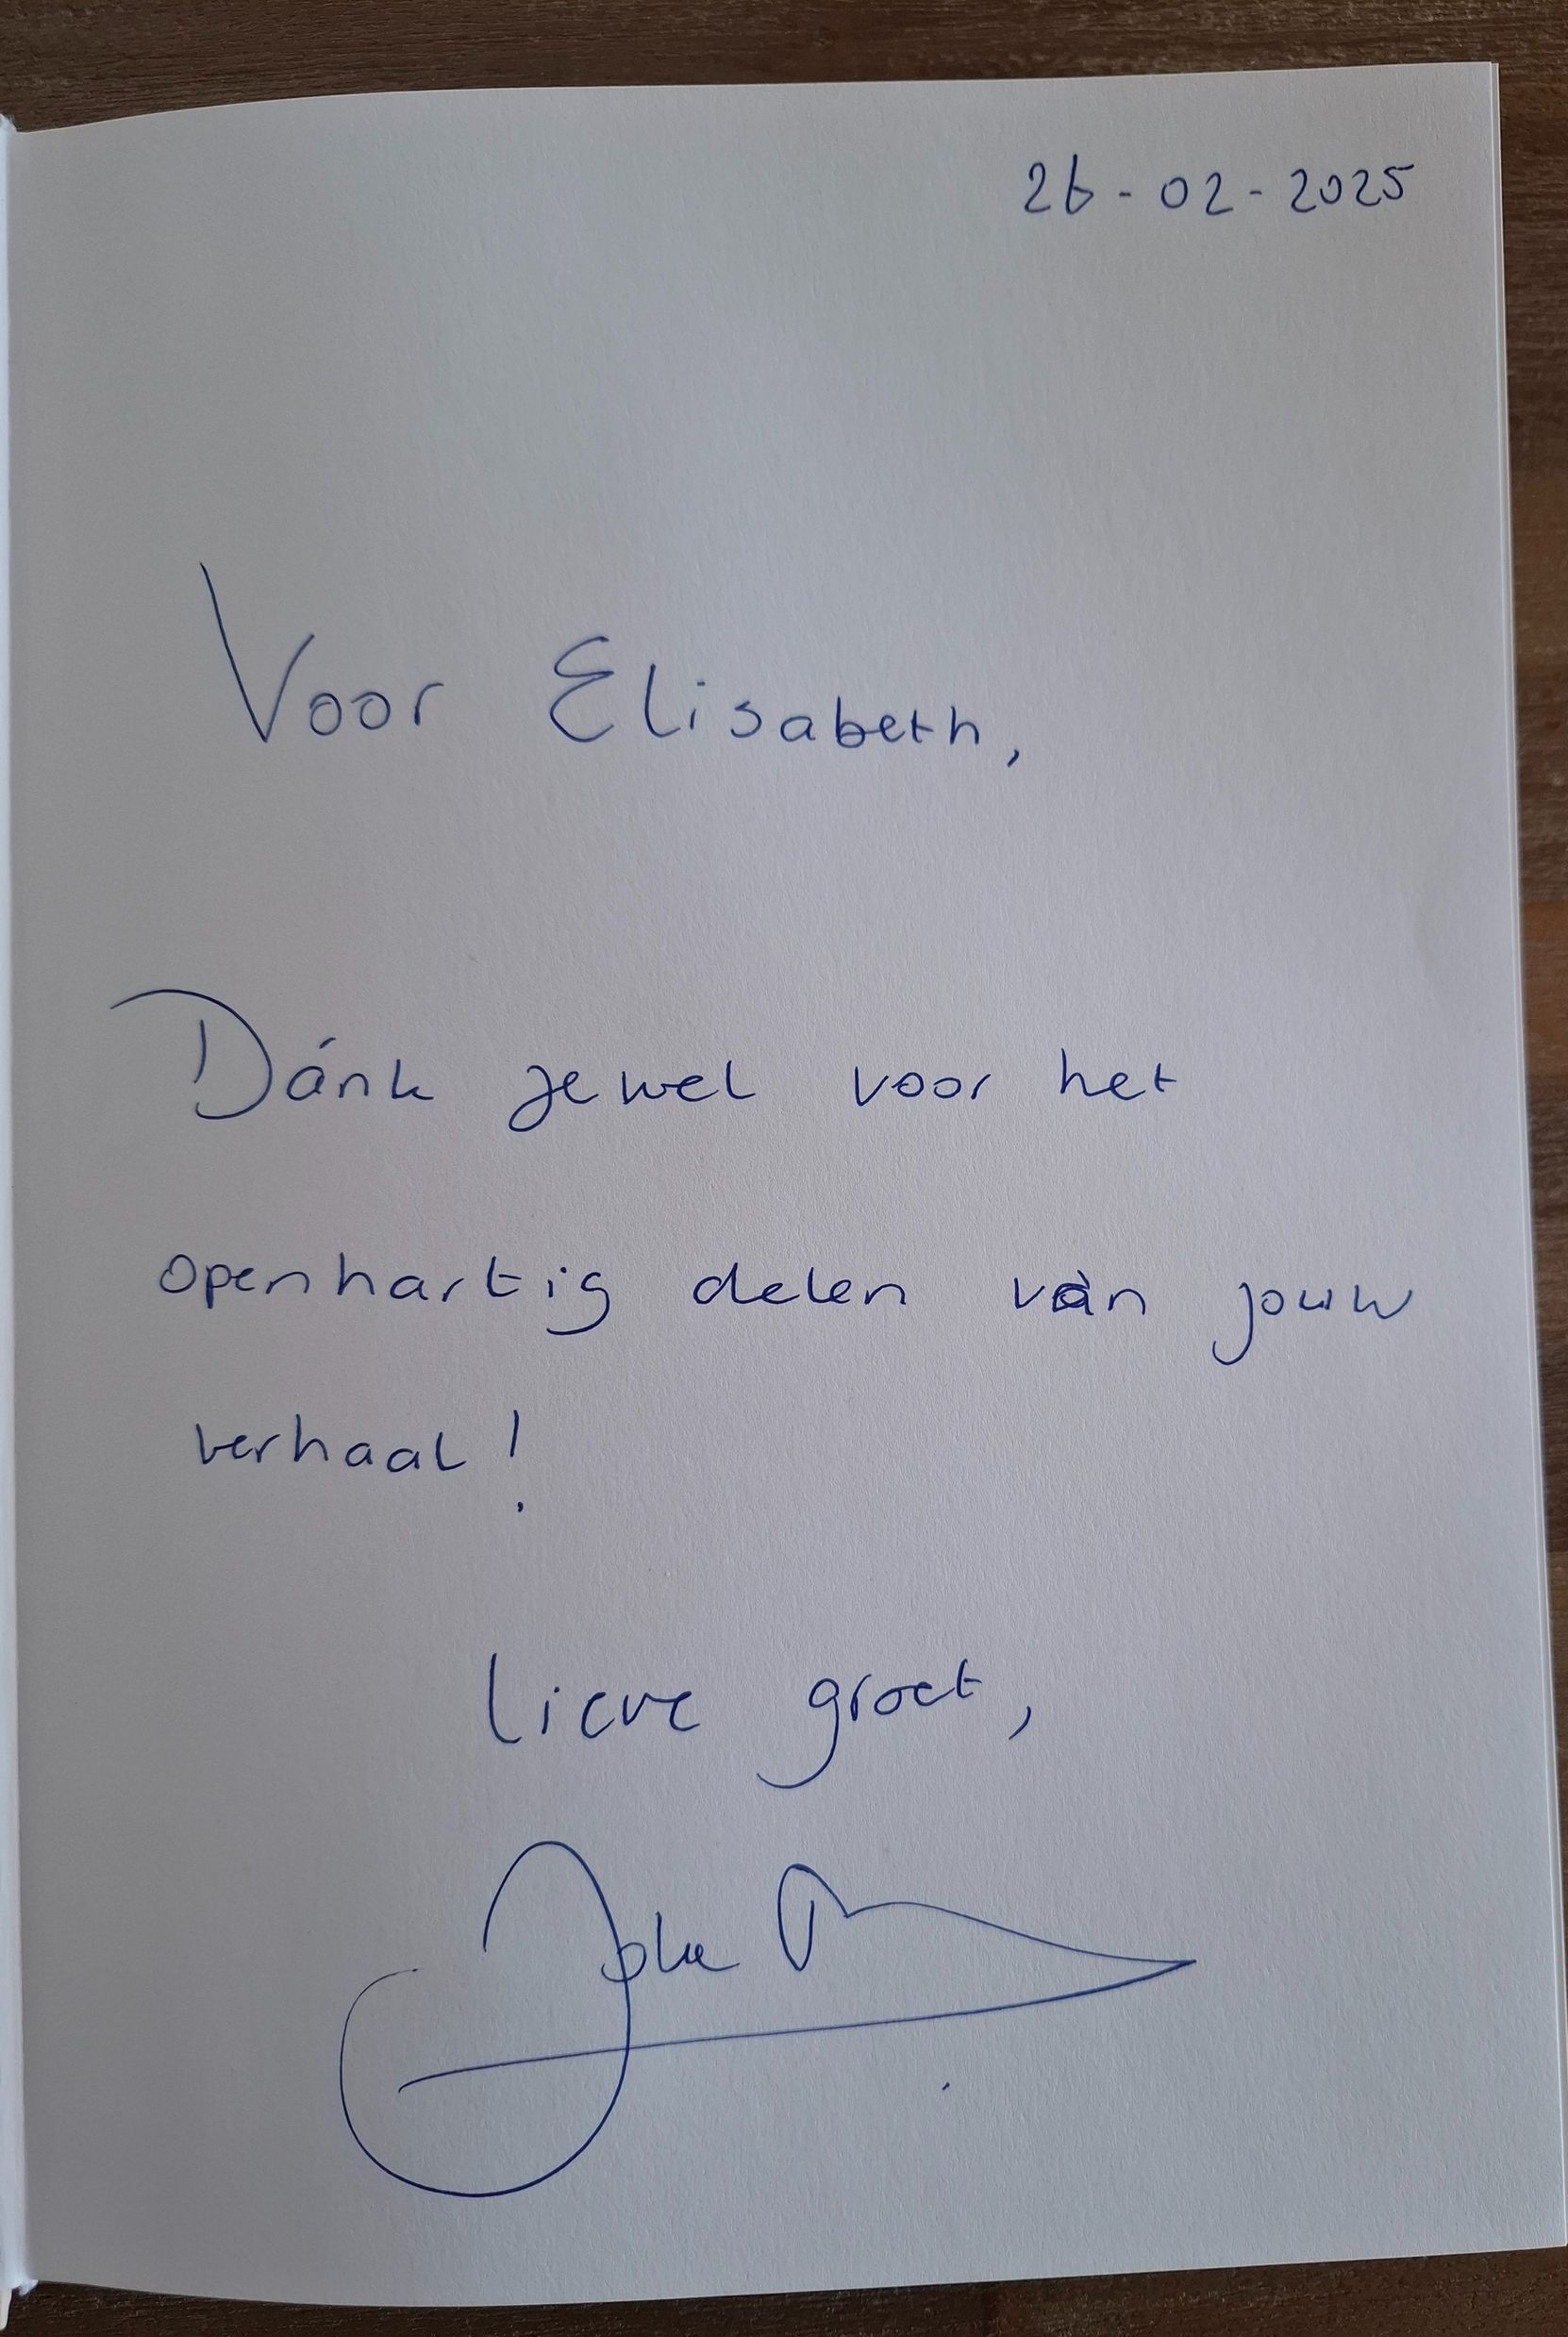 26-02-2025
Voor Elisabeth,
Dánk jewel voor het
openhartig delen van jouw
verhaal!
lieve groet,
Joke